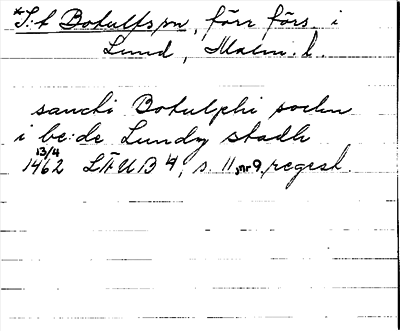 *S:t Botulfs sn, förr förs. i
Lund, Malm. l.
sancti Botulphi sochn
i be:de Lundz stadh
13/4
1462 LÄUB 4, s. 11, nr 9, regest.